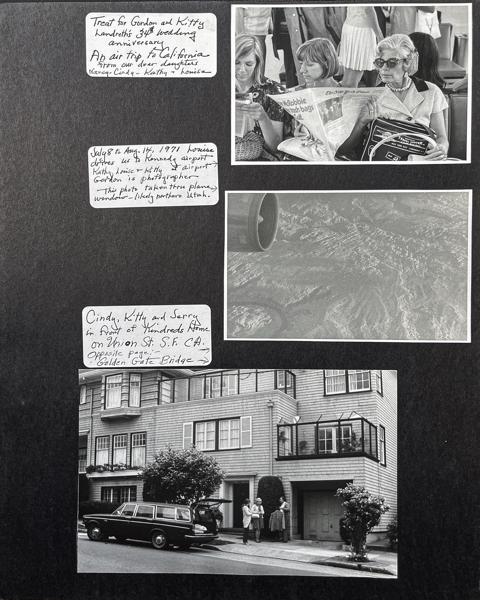 Treat for Gordon and Kitty
Landreth's 34th wedding
anniversary
An air trip to California
from our dear daughters
Nancy - Cindy - Kathy + Louise
July 8 to Aug. 14, 1971 Louise
drives us to Kennedy airport
Kathy, Louise + Kitty at airport →
Gordon is photographer
This photo taken thru plane →
window - likely northern Utah.
Cindy, Kitty and Serry
in front of Kindreds Home
on Union St. S.F. CA.
Opposite page:- →
Golden Gate Bridge →
bags